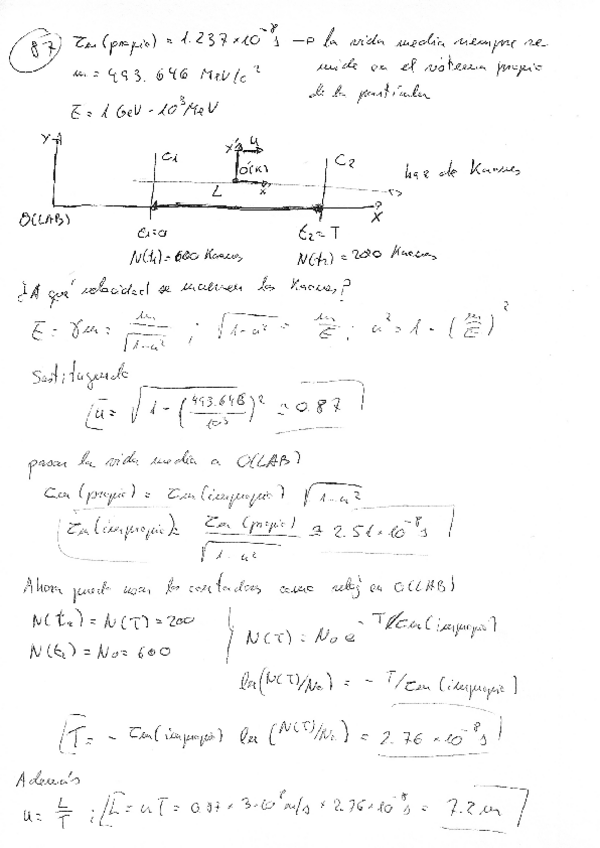 87) τm(propio) = 1.237×10⁻⁸ s → la vida media siempre se
mide en el sistema propio
de la partícula
m = 493.646 MeV/c²
E = 1 GeV = 10³ MeV
Y
C1
x' u
O'(K)
x'
C2
haz de Kaones
L
O(LAB)
X
t1=0
t2=T
N(t1)=600 Kaones
N(t2)=200 Kaones
¿A qué velocidad se mueven los Kaones?
E = γm = m/√(1-u²) ; √(1-u²) = m/E ; u² = 1 - (m/E)²
Sustituyendo
u = √(1 - (493.646/10³)²) ≃ 0.87
pasar la vida media a O(LAB)
τm(propio) = τm(impropio) √(1-u²)
τm(impropio) = τm(propio)/√(1-u²) ≃ 2.51×10⁻⁸ s
Ahora puedo usar los contadores como reloj en O(LAB)
N(t2) = N(T) = 200
N(t1) = N0 = 600
N(T) = N0 e^-T/τm(impropio)
ln(N(T)/N0) = - T/τm(impropio)
T = - τm(impropio) ln(N(T)/N0) = 2.76×10⁻⁸ s
Además
u = L/T ; L = uT = 0.87 × 3·10⁸ m/s × 2.76×10⁻⁸ s = 7.2 m